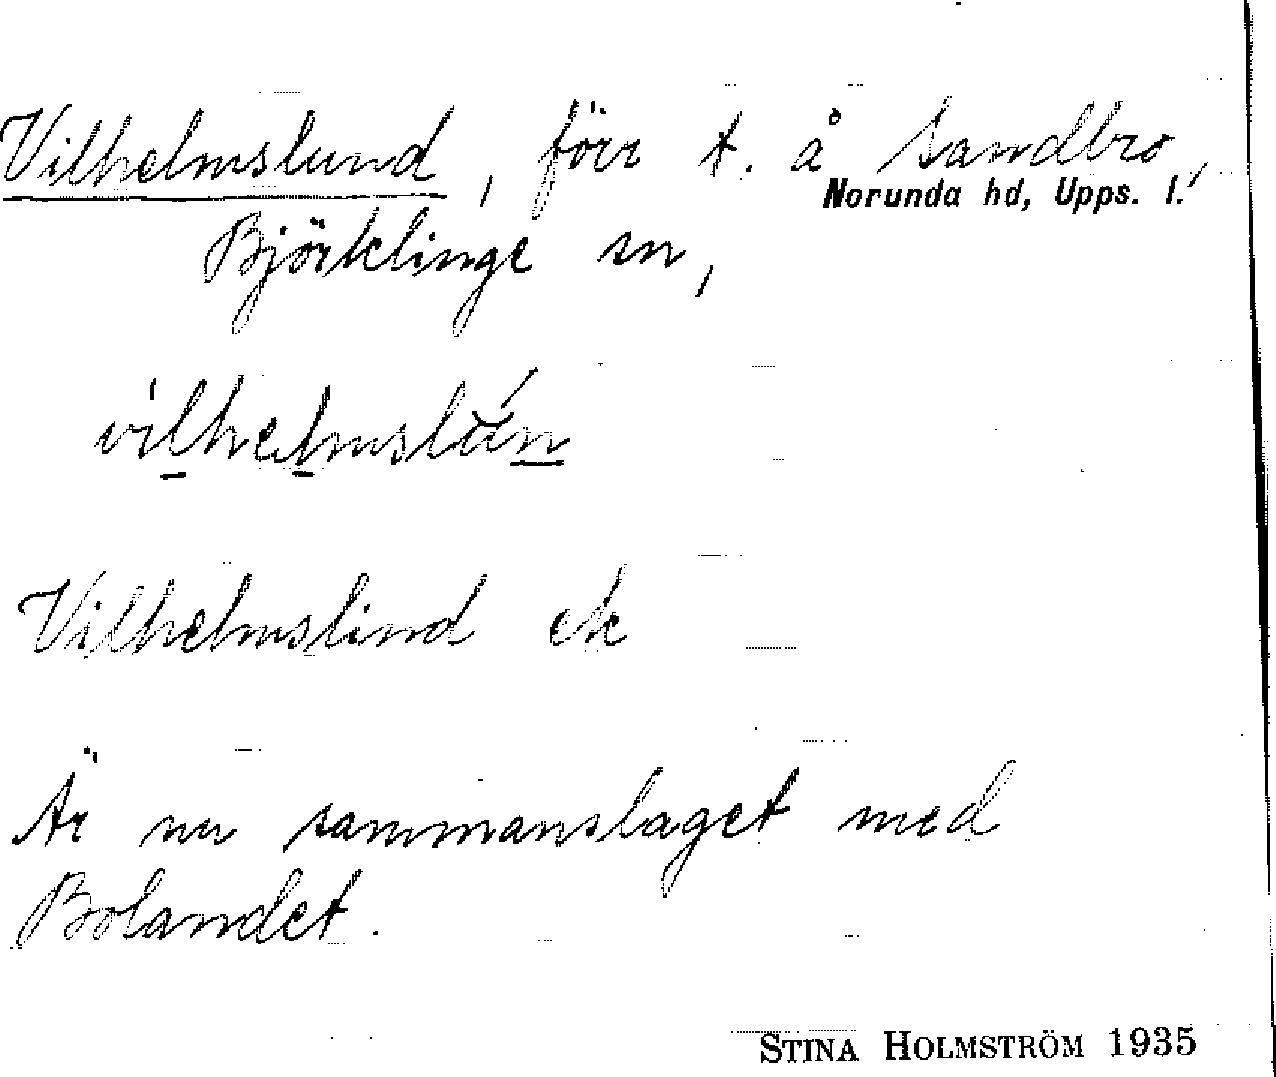 Vilhelmslund, förr t. å Sandbro,
Norunda hd, Upps. l.
Björklinge sn,
vilhelmslún
Vilhelmslind ek
Är nu sammanslaget med
Bolandet.
STINA HOLMSTRÖM 1935